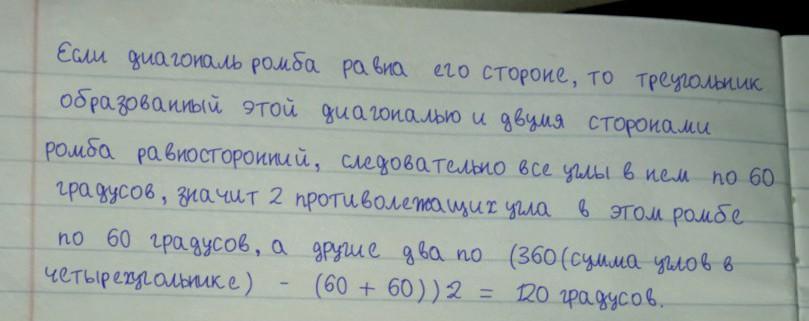 Если диагональ ромба равна его стороне, то треугольник
образованный этой диагональю и двумя сторонами
ромба равносторонний, следовательно все углы в нем по 60
градусов, значит 2 противолежащих угла в этом ромбе
по 60 градусов, а другие два по (360(сумма углов в
четырехугольнике) - (60 + 60))2 = 120 градусов.